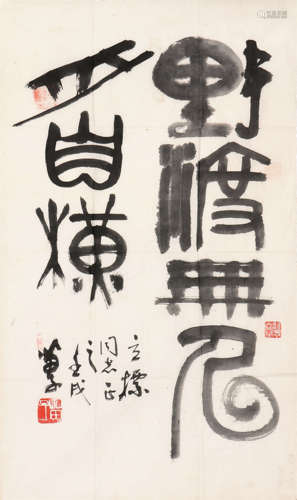 野渡無人
舟自横
立標
同志正
之壬戌